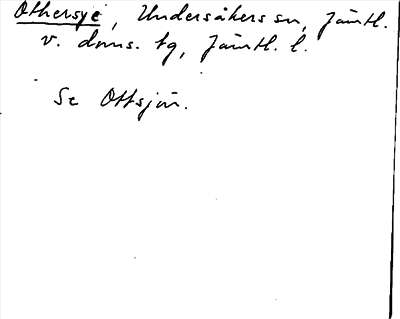 Othersye, Undersåkers sn, Jämtl.
v. doms. tg, Jämtl. l.
Se Ottsjön.